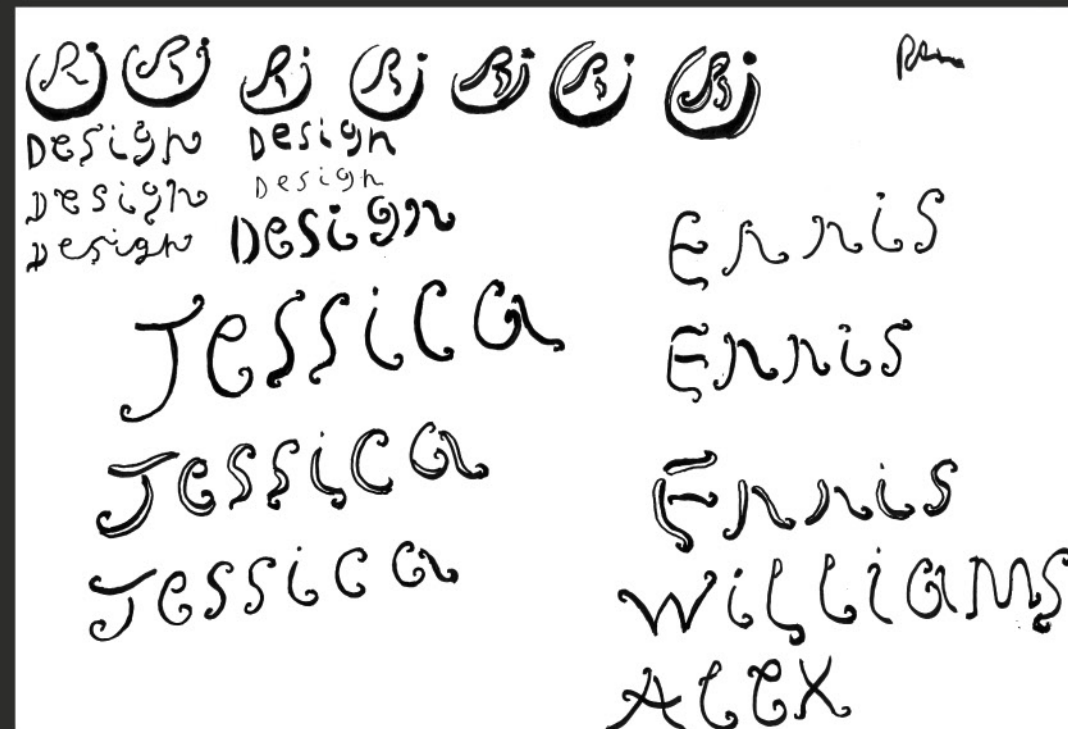 Design Design
Design Design
Design Design
Jessica
Jessica
Jessica
Ennis
Ennis
Ennis
Williams
Alex